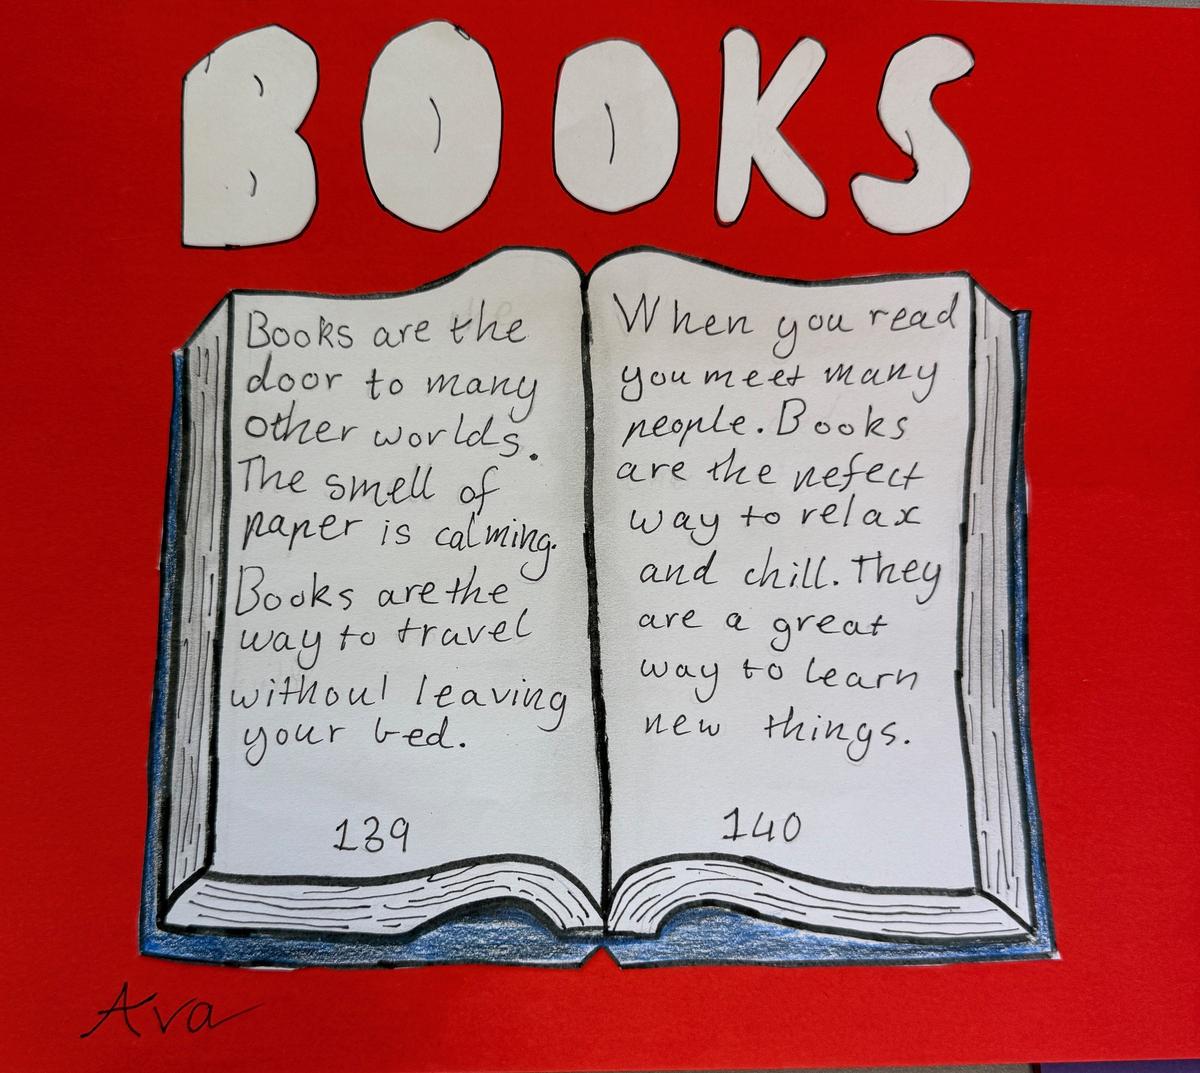 BOOKS
Books are the
door to many
other worlds.
The smell of
paper is calming.
Books are the
way to travel
without leaving
your bed.
139
When you read
you meet many
people. Books
are the pefect
way to relax
and chill. They
are a great
way to learn
new things.
140
Ava